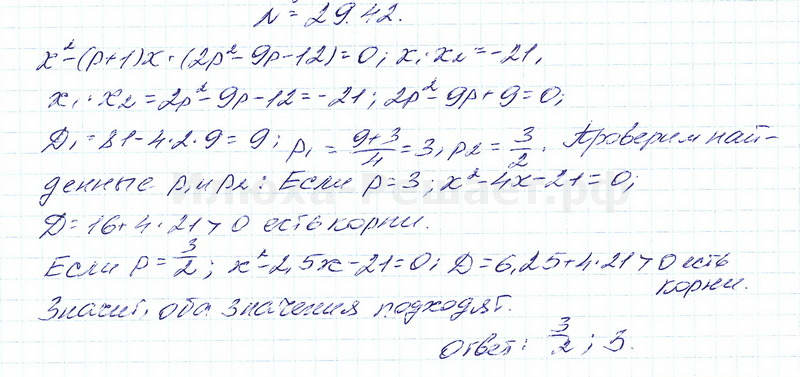 № 29.42.
x²-(p+1)x+(2p²-9p-12)=0; x₁·x₂=-21,
x₁·x₂=2p²-9p-12=-21; 2p²-9p+9=0;
D₁=81-4·2·9=9; p₁=(9+3)/4=3, p₂=3/2. Проверим най-
денные p₁ и p₂: Если p=3; x²-4x-21=0;
D=16+4·21>0 есть корни.
Если p=3/2; x²-2,5x-21=0; D=6,25+4·21>0 есть
корни.
Значит, оба значения подходят.
Ответ: 3/2; 3.
Илюха-Решает.рф